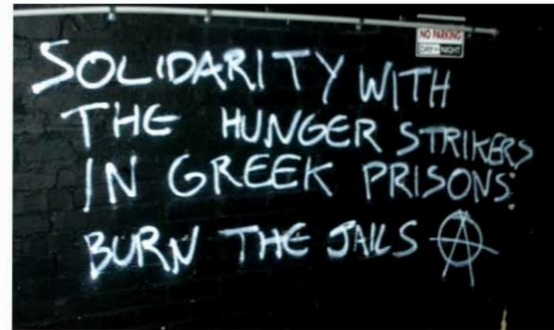 NO PARKING
DAY OR NIGHT
SOLIDARITY WITH
THE HUNGER STRIKERS
IN GREEK PRISONS
BURN THE JAILS